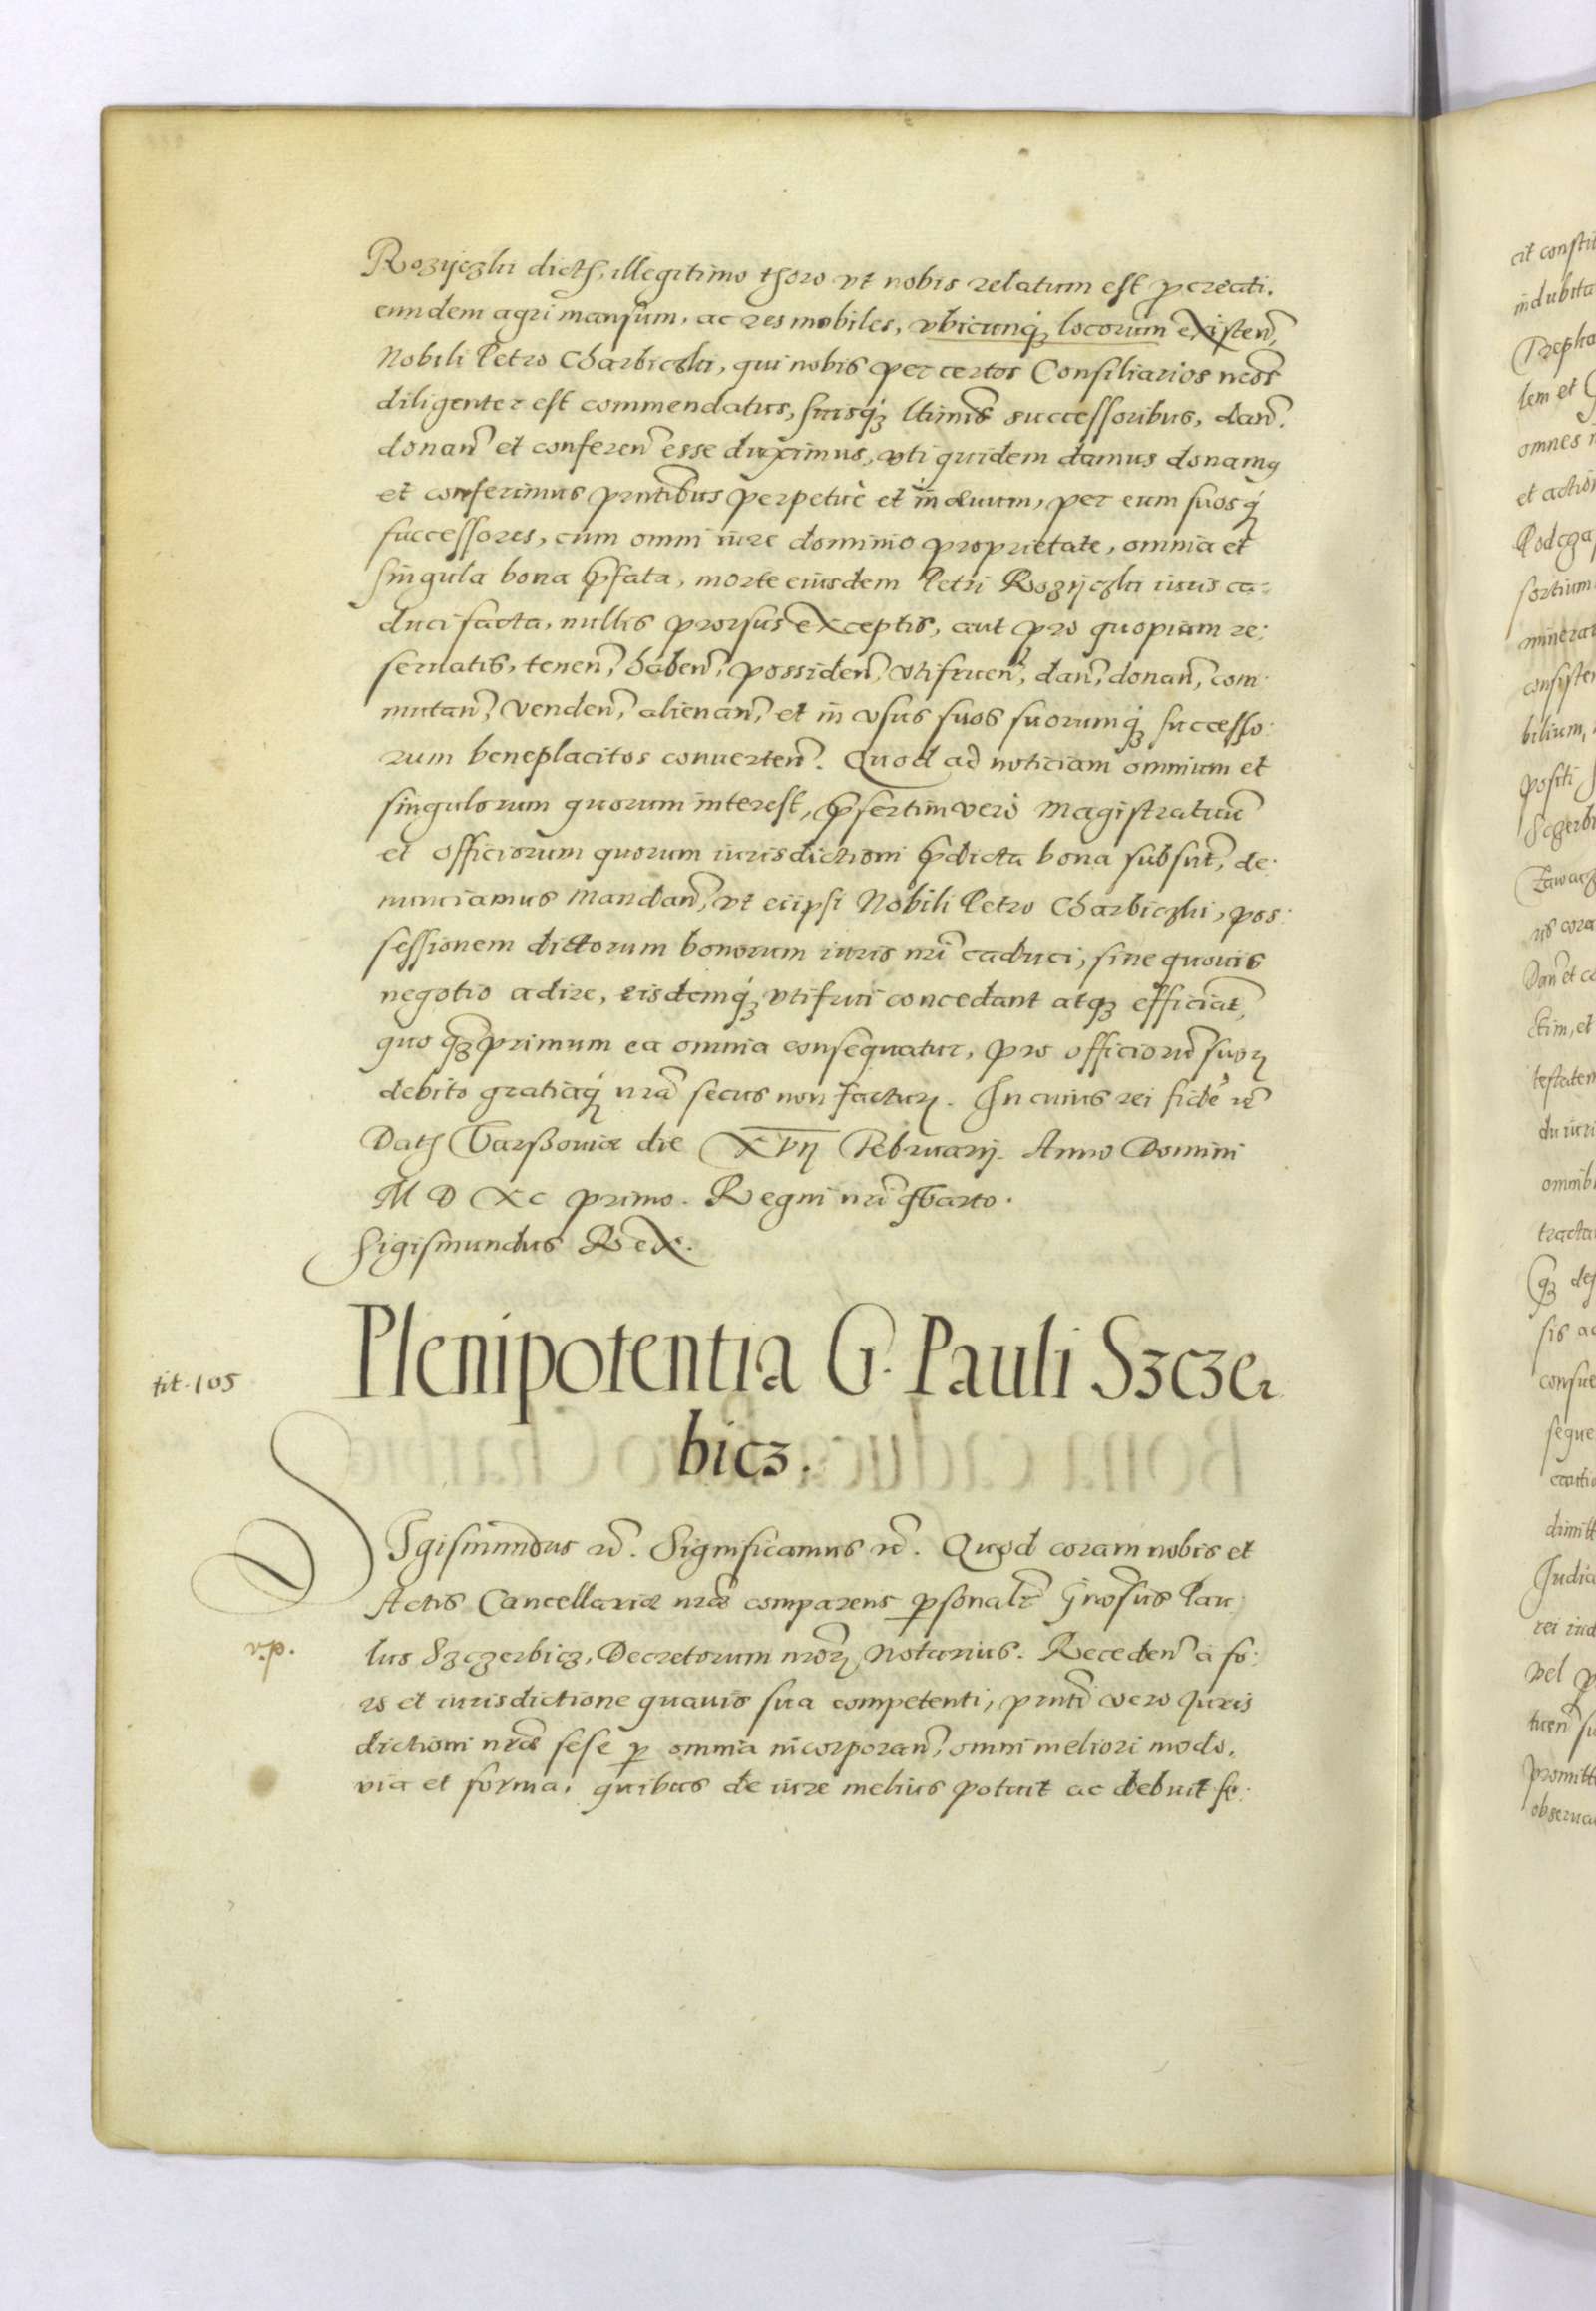 Rozÿczki dicti, illegitimo thoro vt nobis relatum est pcreati.
eundem agri mansum, ac res mobiles, vbicunq3 locorum existen̄,
Nobili Petro Charbiczki, qui nobis per certos Consiliarios nr̄os
diligenter est commendatus, suisq3 ltimis successoribus, dan̄.
donan̄ et conferen̄ esse duximus, vti quidem damus donamq
et conferimus pn̄tibus perpetuè et in æuum, per eum suosq3
successores, cum omni iure dominio proprietate, omnia et
singula bona p̄fata, morte eiusdem Petri Rozÿczki iuris ca:
duci facta, nullis prorsus exceptis, aut pro quopiam re:
seruatis, tenen̄, haben̄, possiden̄, vtifruen̄, dan̄, donan̄, com:
mutan̄, venden̄, alienan̄, et in vsus suos suorumq3 successo:
rum beneplacitos conuerten̄. Quod ad noticiam omnium et
singulorum quorum interest, p̄sertim verò Magistratuū
et officiorum quorum iurisdictioni p̄dicta bona subsūt, de:
nunciamus mandan̄, vt eiipsi Nobili Petro Charbiczki, pos:
sessionem dictorum bonorum iuris nr̄i caduci, sine quouis
negotio adire, eisdemq3 vtifrui concedant atq3 efficiāt,
quo q̄3primum ea omnia consequatur, pro officiorū suoꝝ
debito gratiaq3 nrā secus non factuꝝ. In cuius rei fidē ꝛc̄
Datꝭ Varßouiæ die XVII Februarij. Anno Domini
M D XC primo. Regni nr̄i qVarto.
Sigismundus Rex.
Plenipotentia G. Pauli Szczer
bicz.
tit. 105
SIgismundus ꝛc̄. Significamus ꝛc̄. Quod coram nobis et
Actis Cancellariæ nr̄æ comparens psonalr̄ Gnosus Pau:
lus Szczerbicz, Decretorum nr̄oꝝ Notarius. Receden̄ à fo:
ro et iurisdictione quauis sua competenti, pn̄ti vero Juris
dictioni nr̄æ sese p omnia incorporan̄, omni meliori modo,
via et forma, quibus de iure melius potuit ac debuit fe:
v.p.